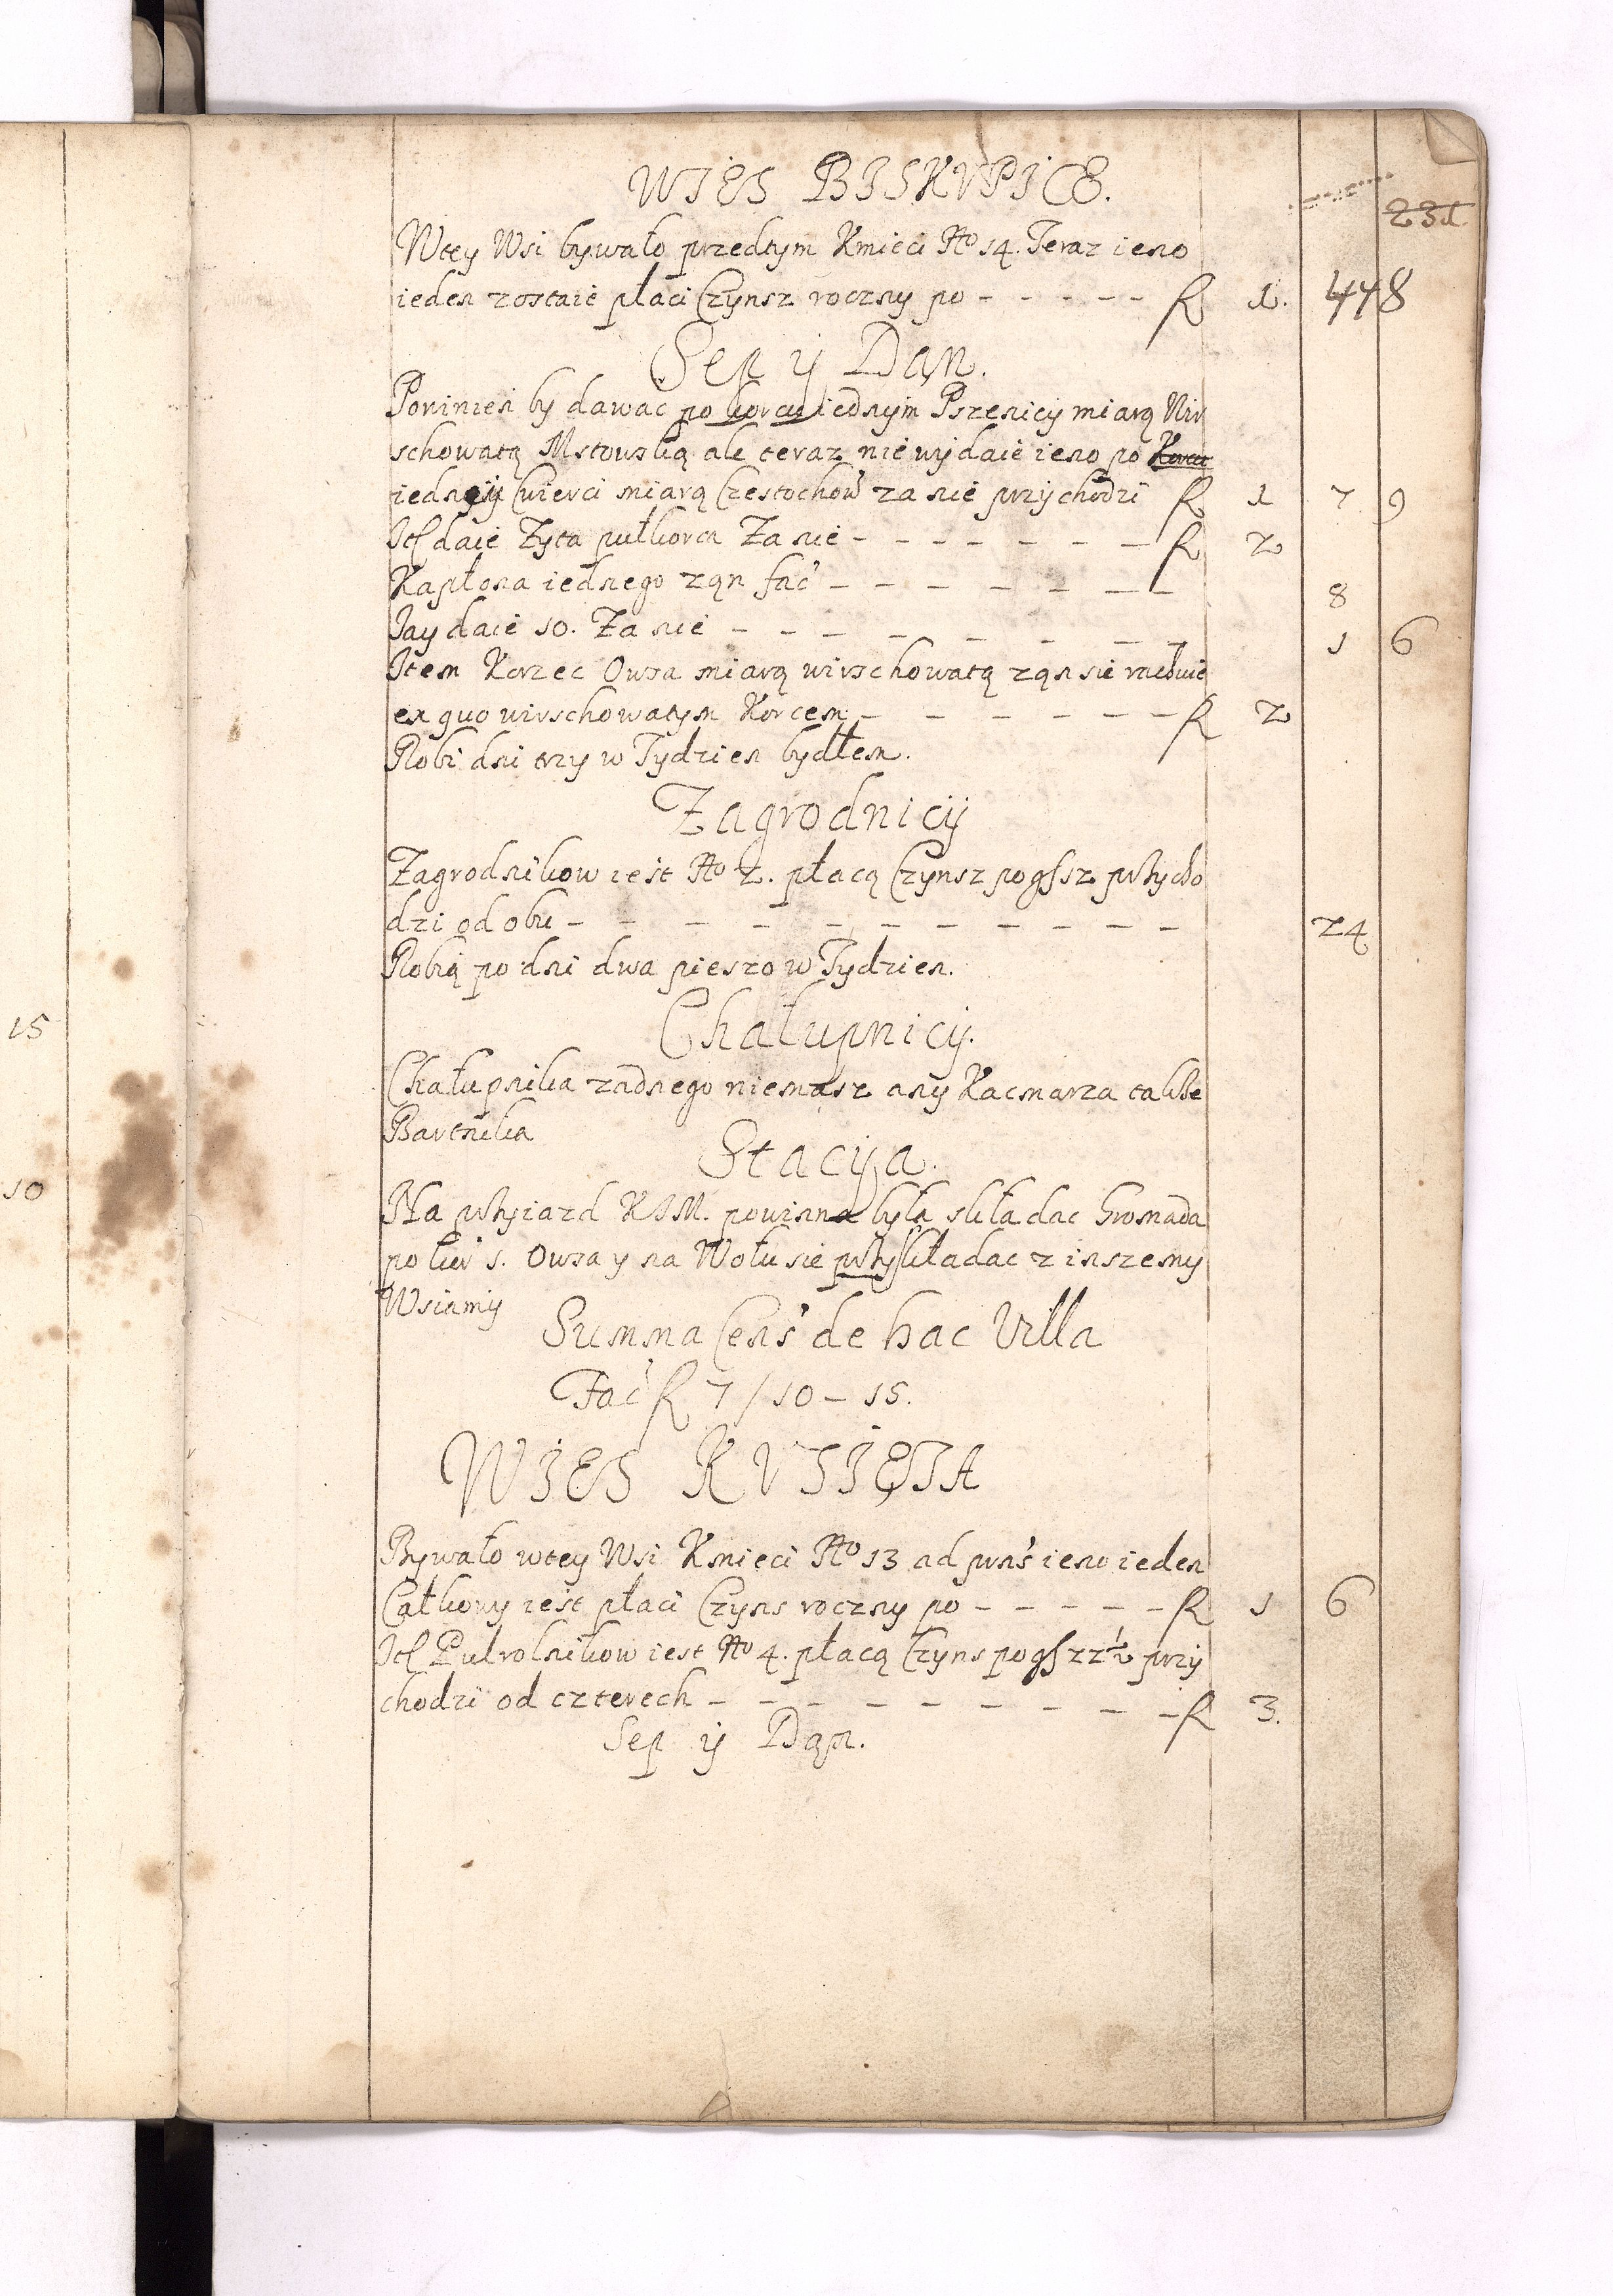 WIES BISKVPICE.
231
Wtey Wsi bywało przedtym Kmieci No 14. Teraz ieno
ieden zostaie płaci Czynsz roczny po - - - - - fl 1. 448
Sep ij Dąn.
Powinien by dawac po korcu iednym Pszenicy miarą Wir
schowatą Mstowską ale teraz nie wydaie ieno po Korcu
iedney Cwierci miarą Czestochow za nie przychodzi fl 1 7 9
Itl daie Zyta pułkorca Za nie - - - - - - - fl 2
Kapłona iednego zań fac - - - - - - - 8
Jay daie 10. Za nie - - - - - - - - 1 6
Item Korzec Owsa miarą wirschowatą zań sie rachuie
ex quo wirschowatym Korcem - - - - - - - fl 2
Robi dni trzy w Tydzien bydłem.
Zagrodnicy
Zagrodnikow iest No 2. płacą Czynsz po gſ 12 przycho
dzi od obu - - - - - - - - - - 24
Robią po dni dwa pieszo w Tydzien.
Chałupnicy.
Chałupnika zadnego niemasz any Kacmarza takze
Bartnika
Stacyja.
15
10
Na przyiazd KJM. powinna była składac Gromada
po kor 1. Owsa y na Wołu sie przykładac z inszemy
Wsiamy
Summa Cens de hac Villa
Fac fl 7 / 10 - 15.
WIES KVSIĘTA
Bywało wtey Wsi Kmieci No 13 ad pnns ieno ieden
Całkowy iest płaci Czyns roczny po - - - - - fl 1 6
Itl Pulrolnikow iest No 4. płacą Czyns po gſ 22½ przy
chodzi od czterech - - - - - - - - - fl 3.
Sep ij Dąn.